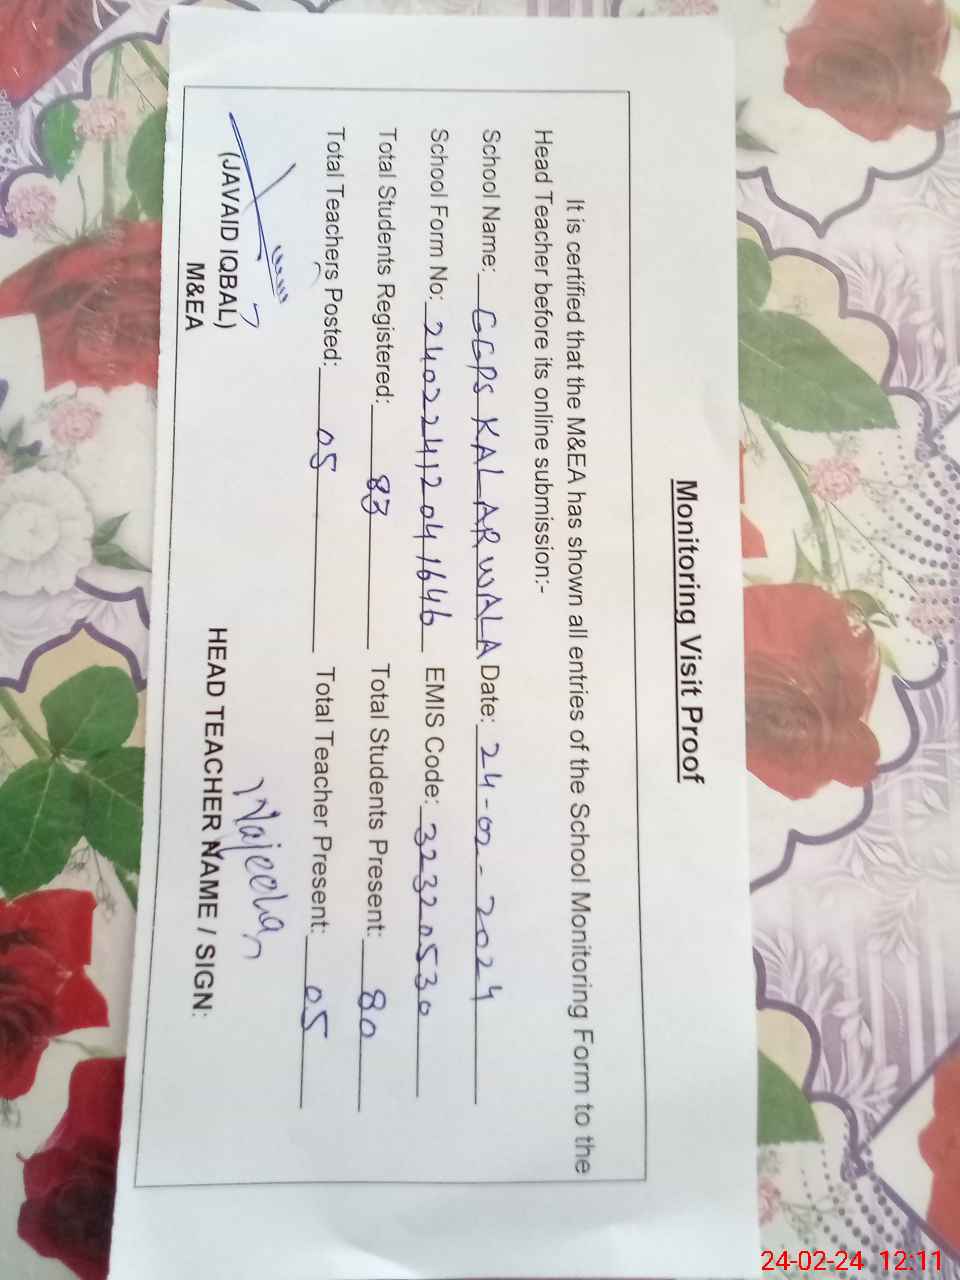 Monitoring Visit Proof
It is certified that the M&EA has shown all entries of the School Monitoring Form to the
Head Teacher before its online submission:-
School Name: GGPS KALARWALA Date: 24-02-2024
School Form No: 24022412041646 EMIS Code: 32320530
Total Students Registered: 83 Total Students Present: 80
Total Teachers Posted: 05 Total Teacher Present: 05
Najeeha
(JAVAID IQBAL)
M&EA
HEAD TEACHER NAME / SIGN:
24-02-24 12:11